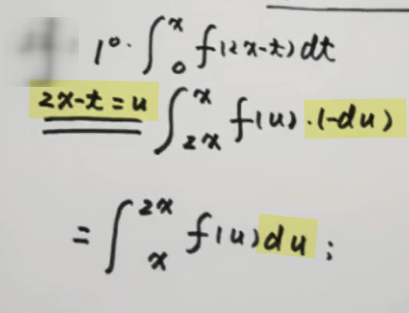 1°. ∫₀ˣ f(2x-t)dt
2x-t=u ∫₂ₓˣ f(u)·(-du)
= ∫ₓ²ˣ f(u)du;